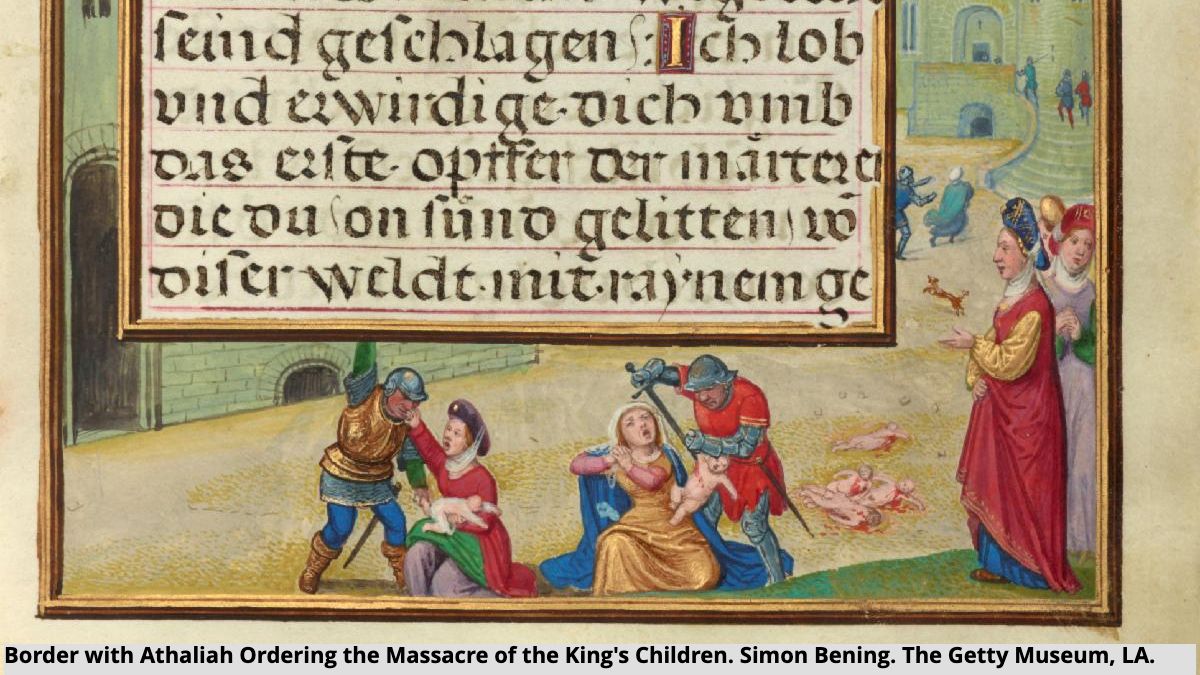 seind geschlagen: Ich lob
vnd erwirdige dich vmb
das erste opffer der märterer
die du son sünd gelitten
diser weldt mit raynem ge
Border with Athaliah Ordering the Massacre of the King's Children. Simon Bening. The Getty Museum, LA.